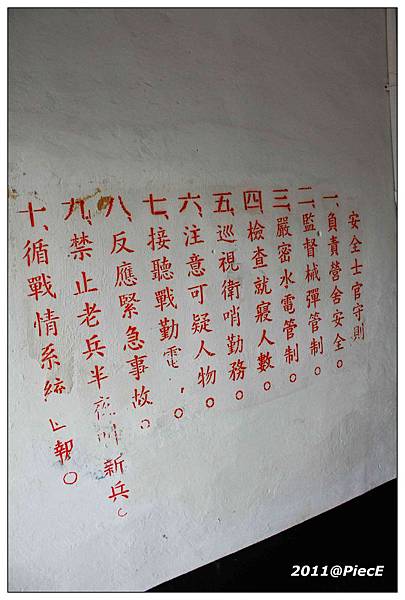 安全士官守則
一、負責營舍安全。
二、監督械彈管制。
三、嚴密水電管制。
四、檢查就寢人數。
五、巡視衛哨勤務。
六、注意可疑人物。
七、接聽戰勤電
八、反應緊急事故。
九、禁止老兵半夜叫新兵。
十、循戰情系統上報。
2011@PiecE